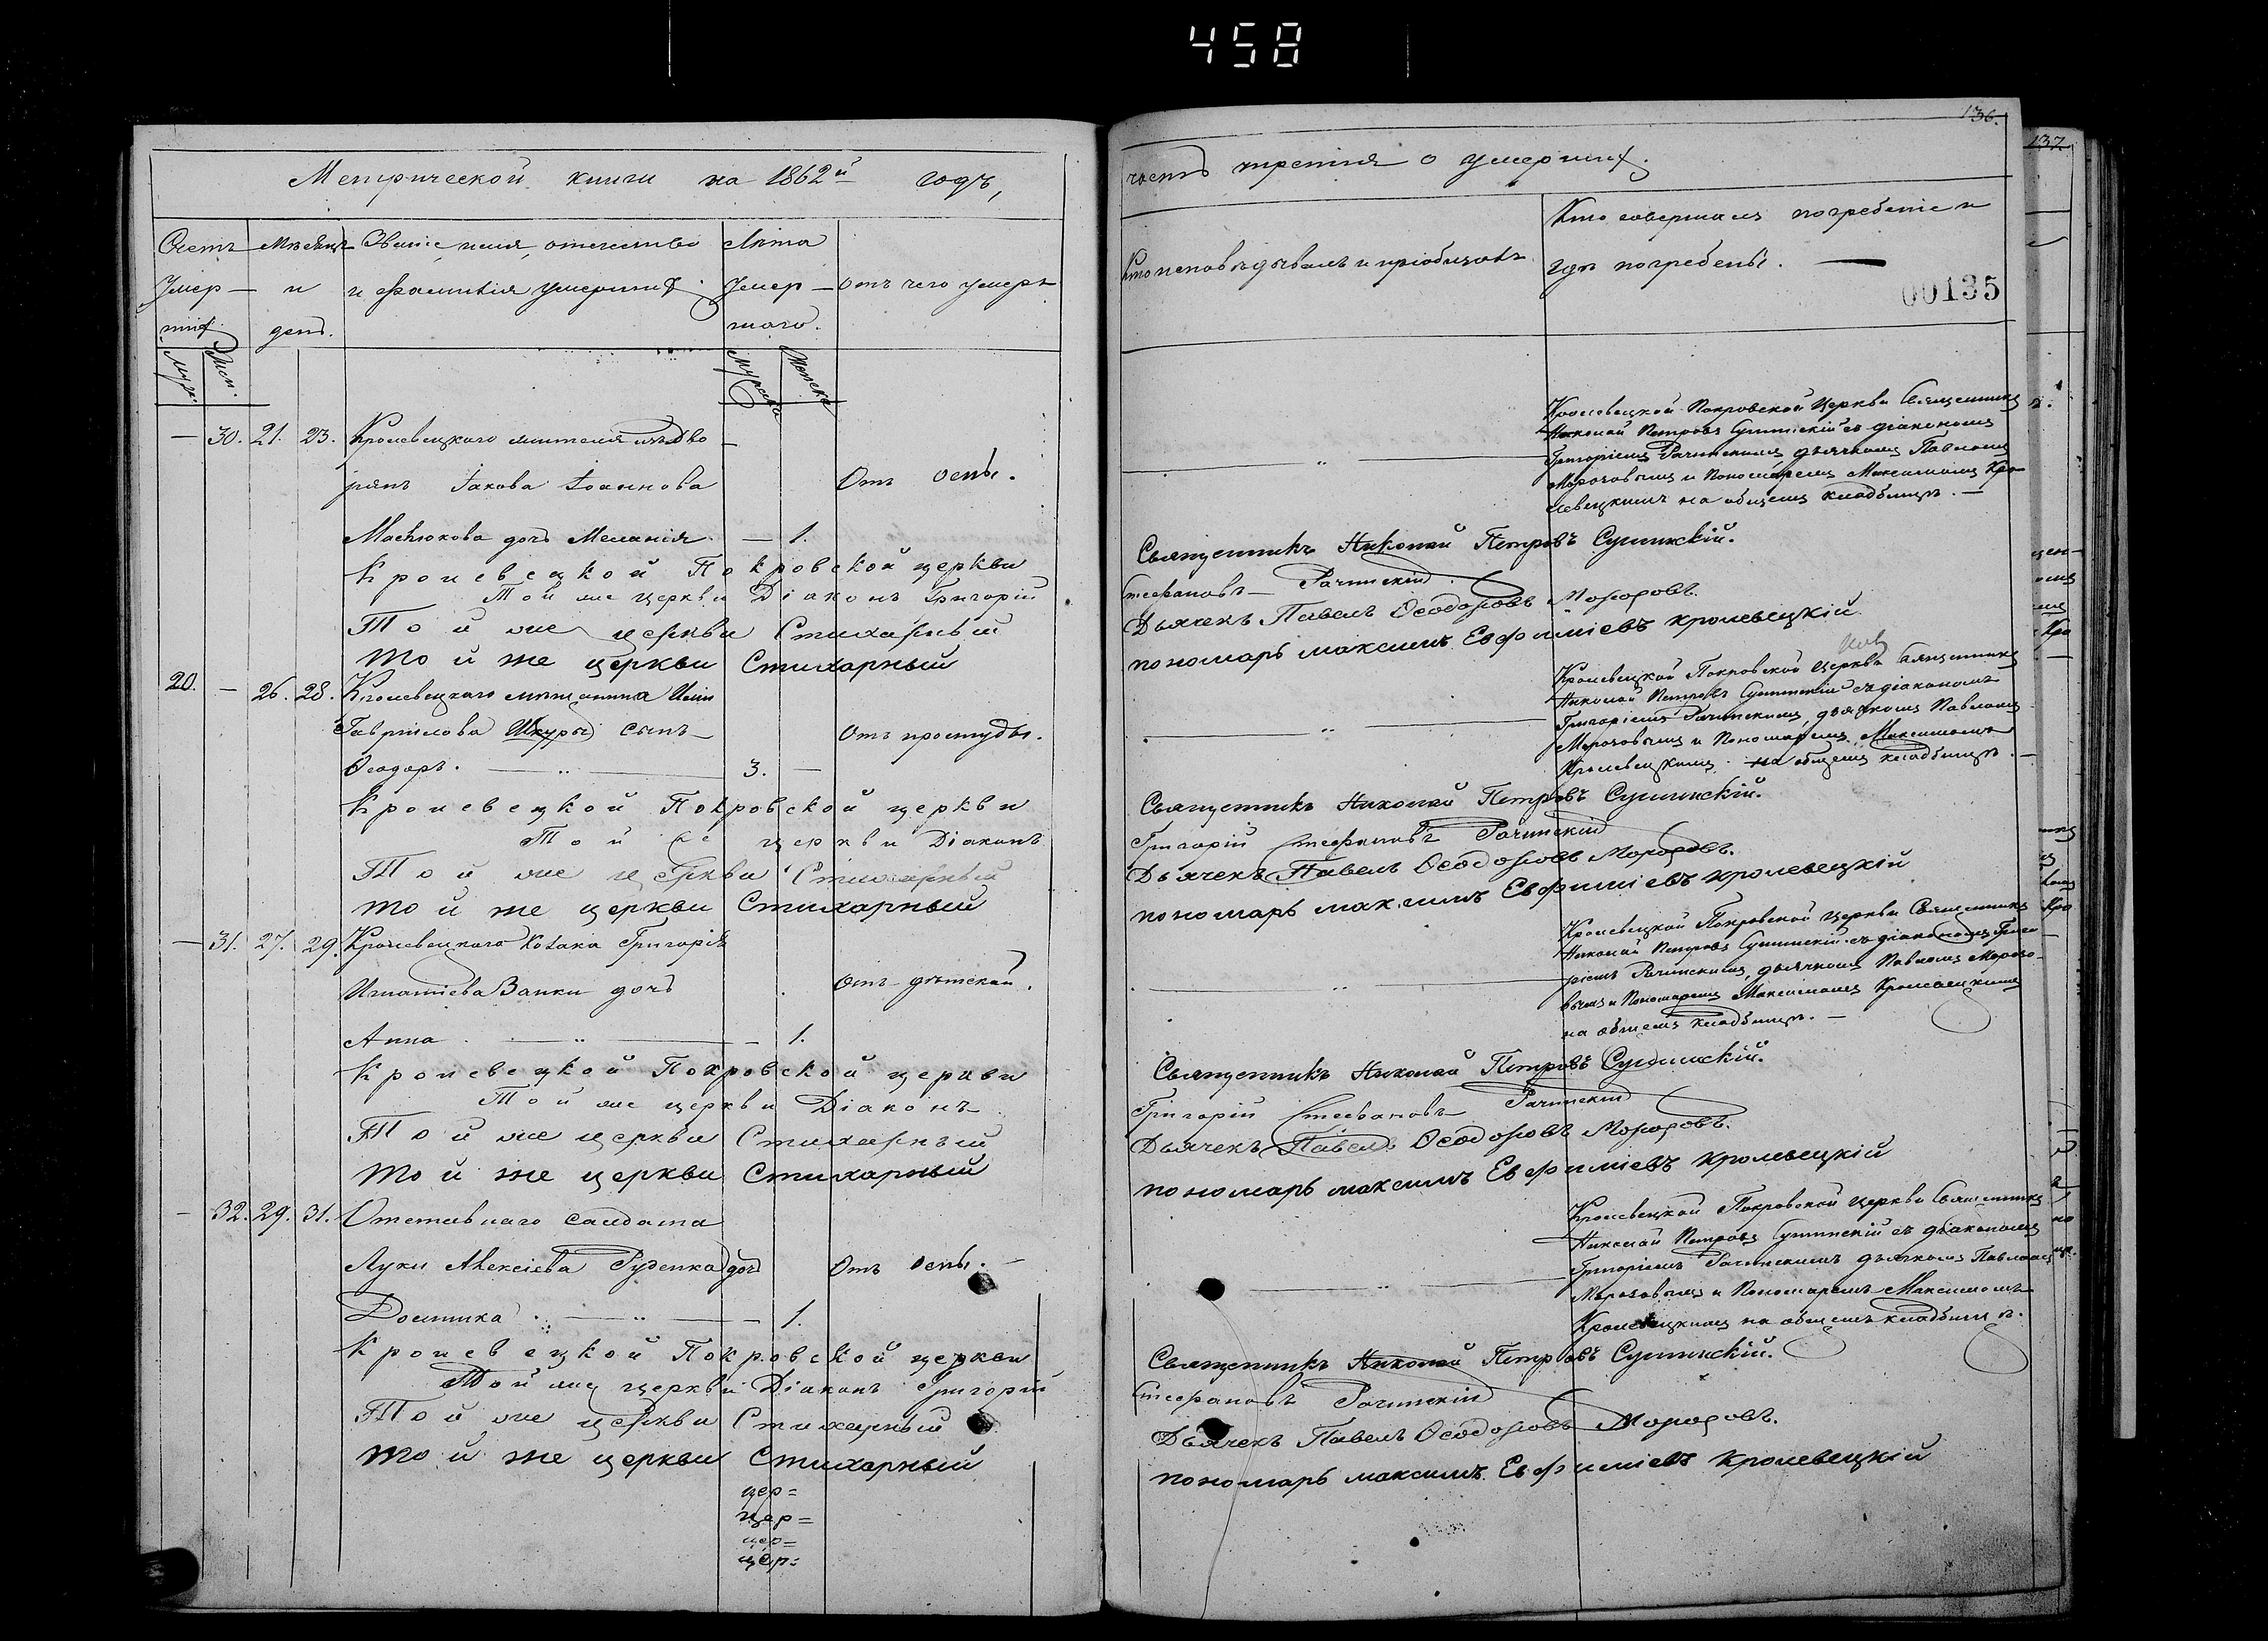 458
136.
137.
Метрической книги на 1862й годъ,
часть третія о умершихъ.
Счетъ Умер— шихъ.
Мѣсяцъ и день.
Званіе, имя, отечество и фамилія умершихъ.
Лѣта Умер— шаго.
Отъ чего умеръ
Кто исповѣдывалъ и пріобщалъ
Кто совершалъ погребеніе и
гдѣ погребены. —
00135
Муж.
Жен.
Мужска
Женска
— 30. 21. 23. Кролевецкаго жителя изъ Дво
рянъ Іакова Іоаннова
Отъ оспы.
дочь Меланія. — 1.
Кролевецкой Покровской Церкви Священникъ
Николай Петровъ Сушинскій съ діакономъ
Григоріемъ Рачинскимъ, дьячкомъ Павломъ
Морозовымъ и Пономаремъ Максимомъ Кро
левецкимъ на общемъ кладбищѣ. —
Кролевецкой Покровской церкви Священникъ Николай Петровъ Сушинскій.
Той же церкви Діаконъ Григорій Стефановъ Рачинскій
Той же церкви Стихарный Дьячекъ Павелъ Ѳеодоровъ Морозовъ.
той же церкви Стихарный пономарь максимъ Евфиміевъ кролевецкій
20. — 26. 28. Кролевецкаго мѣщанина
Гавріилова Шкуры сынъ
Отъ простуды.
Ѳеодоръ. — 3. —
Кролевецкой Покровской Церкви Священникъ
Николай Петровъ Сушинскій съ діакономъ
Григоріемъ Рачинскимъ, дьячкомъ Павломъ
Морозовымъ и Пономаремъ Максимомъ
Кролевецкимъ на общемъ кладбищѣ. —
Кролевецкой Покровской церкви Священникъ Николай Петровъ Сушинскій.
Той же церкви Діаконъ Григорій Стефановъ Рачинскій
Той же церкви Стихарный Дьячекъ Павелъ Ѳеодоровъ Морозовъ.
той же церкви Стихарный пономарь максимъ Евфиміевъ кролевецкій
— 31. 27. 29. Кролевецкаго Козака Григорія
Игнатіева Заики дочь
Отъ дѣтской.
Анна. — 1.
Кролевецкой Покровской Церкви Священникъ
Николай Петровъ Сушинскій съ діакономъ Григо
ріемъ Рачинскимъ, дьячкомъ Павломъ Морозо
вымъ и Пономаремъ Максимомъ Кролевецкимъ
на общемъ кладбищѣ. —
Кролевецкой Покровской церкви Священникъ Николай Петровъ Сушинскій.
Той же церкви Діаконъ Григорій Стефановъ Рачинскій
Той же церкви Стихарный Дьячекъ Павелъ Ѳеодоровъ Морозовъ.
той же церкви Стихарный пономарь максимъ Евфиміевъ кролевецкій
— 32. 29. 31. Отставнаго салдата
Луки Алексіева Руденка дочь
Отъ оспы. —
Домникa. — 1.
Кролевецкой Покровской Церкви Священникъ
Николай Петровъ Сушинскій съ діакономъ
Григоріемъ Рачинскимъ дьячкомъ Павломъ
Морозовымъ и Пономаремъ Максимомъ
Кролевецкимъ на общемъ кладбищѣ.
Кролевецкой Покровской церкви Священникъ Николай Петровъ Сушинскій.
Той же церкви Діаконъ Григорій Стефановъ Рачинскій
Той же церкви Стихарный Дьячекъ Павелъ Ѳеодоровъ Морозовъ.
той же церкви Стихарный пономарь максимъ Евфиміевъ кролевецкій
цер=
цер=
цер=
цер=